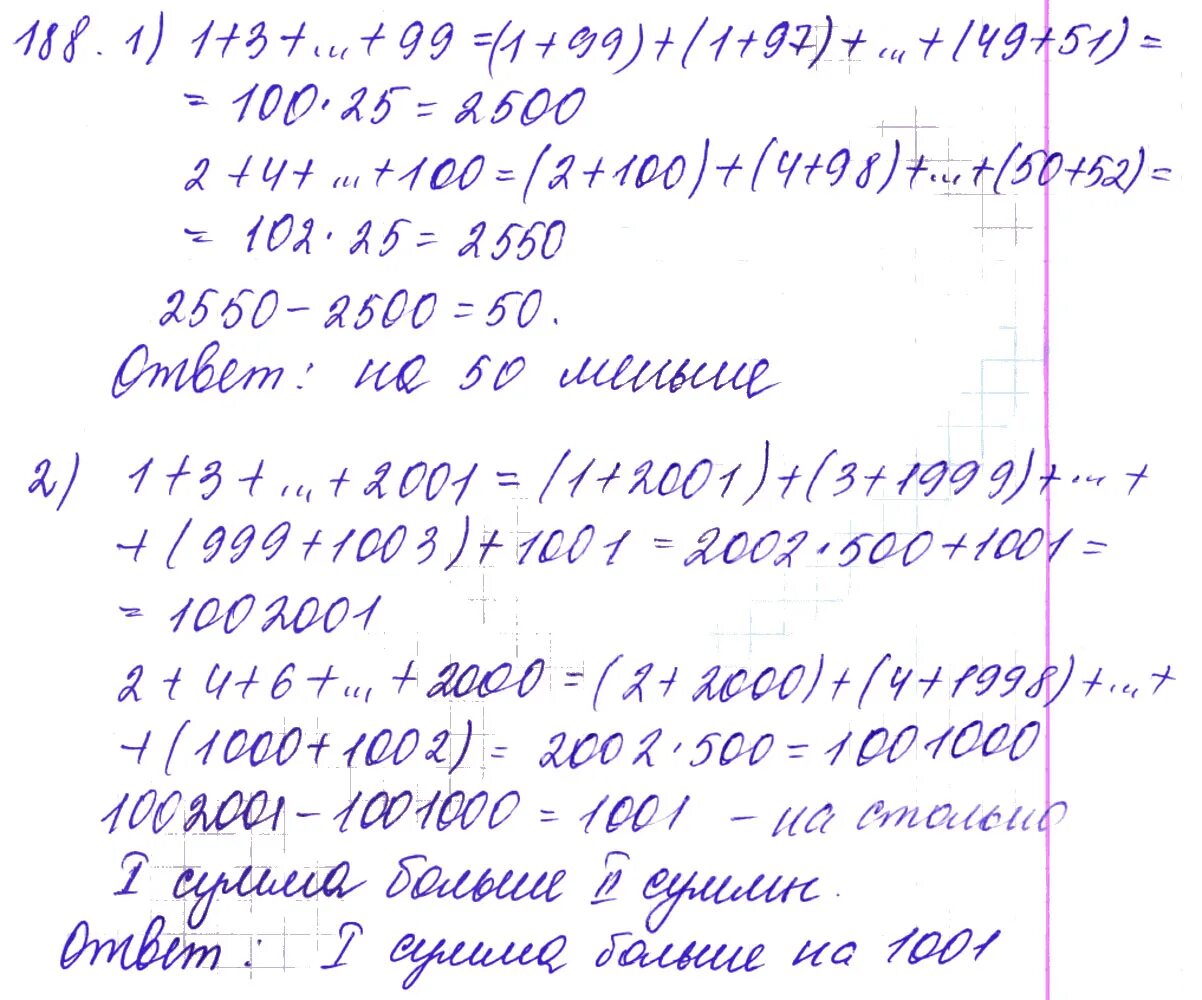 188. 1) 1+3+...+99=(1+99)+(1+97)+...+(49+51)=
= 100·25=2500
2+4+...+100=(2+100)+(4+98)+...+(50+52)=
= 102·25=2550
2550-2500=50.
Ответ: на 50 меньше
2) 1+3+...+2001=(1+2001)+(3+1999)+...+
+(999+1003)+1001=2002·500+1001=
=1002001
2+4+6+...+2000=(2+2000)+(4+1998)+...+
+(1000+1002)=2002·500=1001000
1002001-1001000=1001 - на столько
I сумма больше II суммы.
Ответ: I сумма больше на 1001